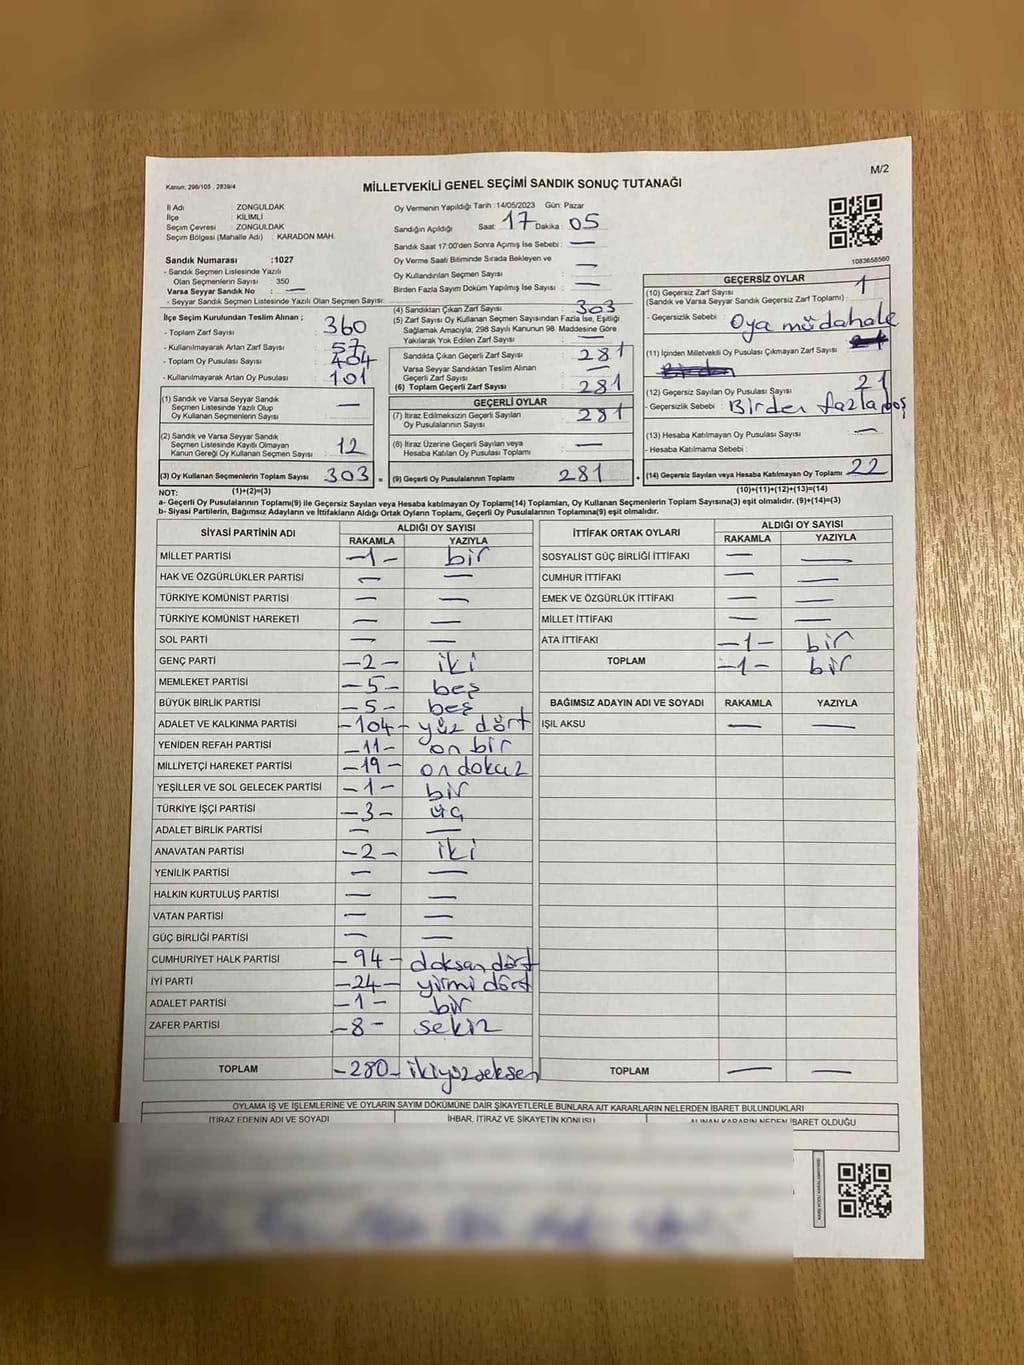 M/2
Kanun; 298/105 , 2839/4
MİLLETVEKİLİ GENEL SEÇİMİ SANDIK SONUÇ TUTANAĞI
İl Adı : ZONGULDAK
İlçe : KİLİMLİ
Seçim Çevresi : ZONGULDAK
Seçim Bölgesi (Mahalle Adı) : KARADON MAH.
Sandık Numarası :1027
- Sandık Seçmen Listesinde Yazılı
Olan Seçmenlerin Sayısı : 350
Varsa Seyyar Sandık No : —
- Seyyar Sandık Seçmen Listesinde Yazılı Olan Seçmen Sayısı:
Oy Vermenin Yapıldığı Tarih :14/05/2023 Gün: Pazar
Sandığın Açıldığı Saat 17 Dakika : 05
Sandık Saat 17:00'den Sonra Açımış İse Sebebi : —
Oy Verme Saati Bitiminde Sırada Bekleyen ve
Oy Kullandırılan Seçmen Sayısı : —
Birden Fazla Sayım Döküm Yapılmış İse Sayısı : —
1083658560
İlçe Seçim Kurulundan Teslim Alınan ;
- Toplam Zarf Sayısı : 360
- Kullanılmayarak Artan Zarf Sayısı : 57
- Toplam Oy Pusulası Sayısı : 404
- Kullanılmayarak Artan Oy Pusulası : 101
(1) Sandık ve Varsa Seyyar Sandık
Seçmen Listesinde Yazılı Olup
Oy Kullanan Seçmenlerin Sayısı : —
(2) Sandık ve Varsa Seyyar Sandık
Seçmen Listesinde Kayıtlı Olmayan
Kanun Gereği Oy Kullanan Seçmen Sayısı : 12
(3) Oy Kullanan Seçmenlerin Toplam Sayısı : 303 =
(4) Sandıktan Çıkan Zarf Sayısı : 303
(5) Zarf Sayısı Oy Kullanan Seçmen Sayısından Fazla İse, Eşitliği
Sağlamak Amacıyla, 298 Sayılı Kanunun 98. Maddesine Göre
Yakılarak Yok Edilen Zarf Sayısı : —
Sandıkta Çıkan Geçerli Zarf Sayısı : 281
Varsa Seyyar Sandıktan Teslim Alınan
Geçerli Zarf Sayısı : —
(6) Toplam Geçerli Zarf Sayısı : 281
GEÇERLİ OYLAR
(7) İtiraz Edilmeksizin Geçerli Sayılan
Oy Pusulalarının Sayısı : 281
(8) İtiraz Üzerine Geçerli Sayılan veya
Hesaba Katılan Oy Pusulası Toplamı : —
(9) Geçerli Oy Pusulalarının Toplamı : 281 +
GEÇERSİZ OYLAR
(10) Geçersiz Zarf Sayısı
(Sandık ve Varsa Seyyar Sandık Geçersiz Zarf Toplamı) : 1
- Geçersizlik Sebebi : Oya müdahale
(11) İçinden Milletvekili Oy Pusulası Çıkmayan Zarf Sayısı :
(12) Geçersiz Sayılan Oy Pusulası Sayısı : 21
- Geçersizlik Sebebi : Birden fazla boş
(13) Hesaba Katılmayan Oy Pusulası Sayısı : —
- Hesaba Katılmama Sebebi :
(14) Geçersiz Sayılan veya Hesaba Katılmayan Oy Toplamı : 22
NOT: (1)+(2)=(3) (10)+(11)+(12)+(13)=(14)
a- Geçerli Oy Pusulalarının Toplamı(9) ile Geçersiz Sayılan veya Hesaba katılmayan Oy Toplamı(14) Toplamları, Oy Kullanan Seçmenlerin Toplam Sayısına(3) eşit olmalıdır. (9)+(14)=(3)
b- Siyasi Partilerin, Bağımsız Adayların ve İttifakların Aldığı Ortak Oyların Toplamı, Geçerli Oy Pusulalarının Toplamına(9) eşit olmalıdır.
SİYASİ PARTİNİN ADI ALDIĞI OY SAYISI
RAKAMLA YAZIYLA
MİLLET PARTİSİ —1— bir
HAK VE ÖZGÜRLÜKLER PARTİSİ — —
TÜRKİYE KOMÜNİST PARTİSİ — —
TÜRKİYE KOMÜNİST HAREKETİ — —
SOL PARTİ — —
GENÇ PARTİ —2— iki
MEMLEKET PARTİSİ —5— beş
BÜYÜK BİRLİK PARTİSİ —5— beş
ADALET VE KALKINMA PARTİSİ —104— yüz dört
YENİDEN REFAH PARTİSİ —11— on bir
MİLLİYETÇİ HAREKET PARTİSİ —19— on dokuz
YEŞİLLER VE SOL GELECEK PARTİSİ —1— bir
TÜRKİYE İŞÇİ PARTİSİ —3— üç
ADALET BİRLİK PARTİSİ — —
ANAVATAN PARTİSİ —2— iki
YENİLİK PARTİSİ — —
HALKIN KURTULUŞ PARTİSİ — —
VATAN PARTİSİ — —
GÜÇ BİRLİĞİ PARTİSİ — —
CUMHURİYET HALK PARTİSİ —94— doksan dört
İYİ PARTİ —24— yirmi dört
ADALET PARTİSİ —1— bir
ZAFER PARTİSİ —8— sekiz
TOPLAM —280— ikiyüzseksen
İTTİFAK ORTAK OYLARI ALDIĞI OY SAYISI
RAKAMLA YAZIYLA
SOSYALİST GÜÇ BİRLİĞİ İTTİFAKI — —
CUMHUR İTTİFAKI — —
EMEK VE ÖZGÜRLÜK İTTİFAKI — —
MİLLET İTTİFAKI — —
ATA İTTİFAKI —1— bir
TOPLAM —1— bir
BAĞIMSIZ ADAYIN ADI VE SOYADI RAKAMLA YAZIYLA
IŞIL AKSU — —
TOPLAM — —
OYLAMA İŞ VE İŞLEMLERİNE VE OYLARIN SAYIM DÖKÜMÜNE DAİR ŞİKAYETLERLE BUNLARA AİT KARARLARIN NELERDEN İBARET BULUNDUKLARI
İTİRAZ EDENİN ADI VE SOYADI İHBAR, İTİRAZ VE ŞİKAYETİN KONUSU ALINAN KARARIN NEDEN İBARET OLDUĞU